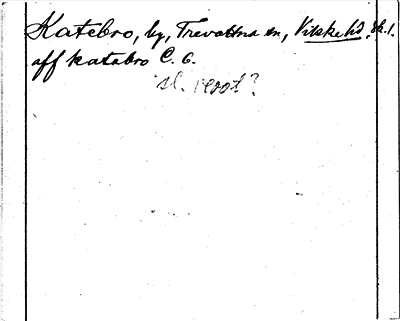 Katebro, by, Trevattna sn, Vilske hd. Sk. l.
aff katabro C. 6.
sl. root?